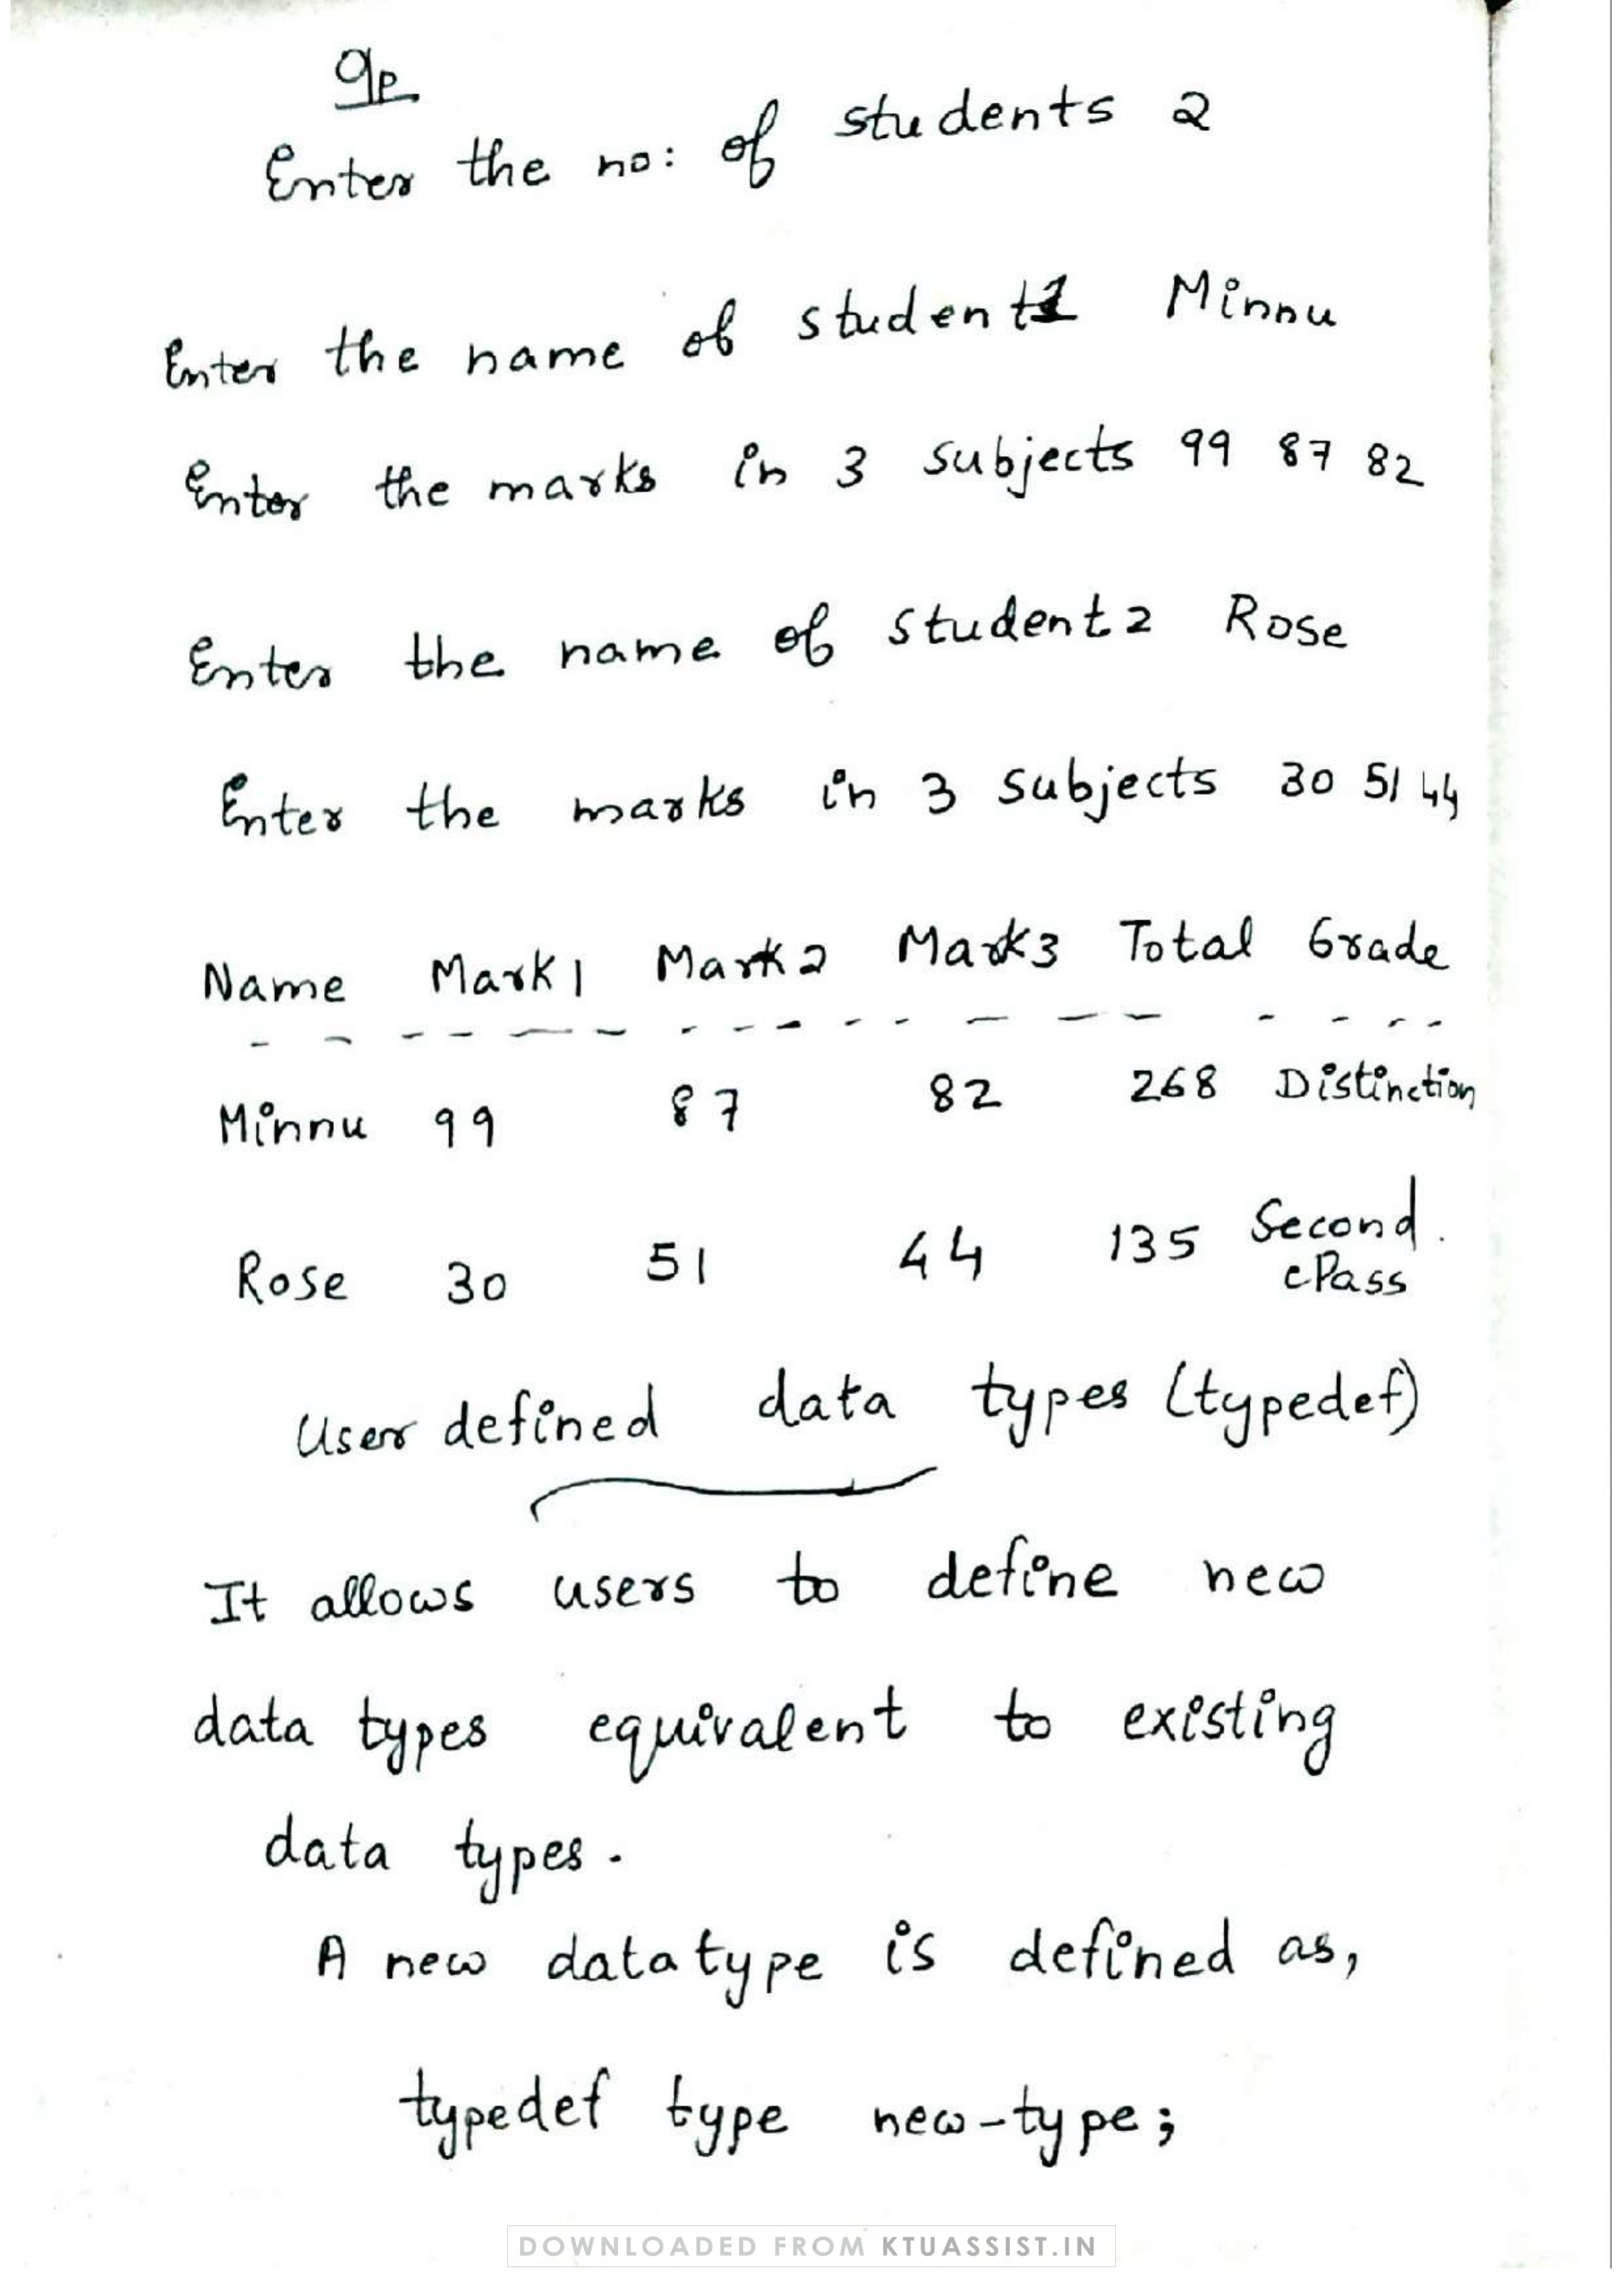 O/P
Enter the no: of students 2
Enter the name of student1 Minnu
Enter the marks in 3 subjects 99 87 82
Enter the name of student2 Rose
Enter the marks in 3 subjects 30 51 44
Name Mark1 Mark2 Mark3 Total Grade
- - - - - - - - - - - - - - - - - -
Minnu 99 87 82 268 Distinction
Rose 30 51 44 135 Second
Pass
User defined data types (typedef)
It allows users to define new
data types equivalent to existing
data types.
A new datatype is defined as,
typedef type new-type;
DOWNLOADED FROM KTUASSIST.IN